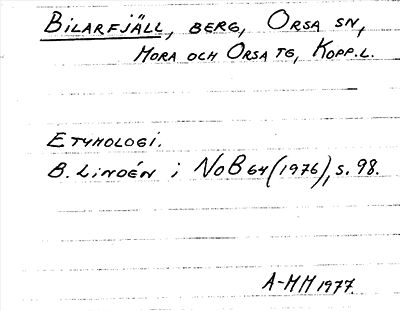 Bilarfjäll, berg, Orsa sn,
Mora och Orsa tg, Kopp.l.
Etymologi.
B. Lindén i NoB 64 (1976), s. 98.
A-MM 1977.